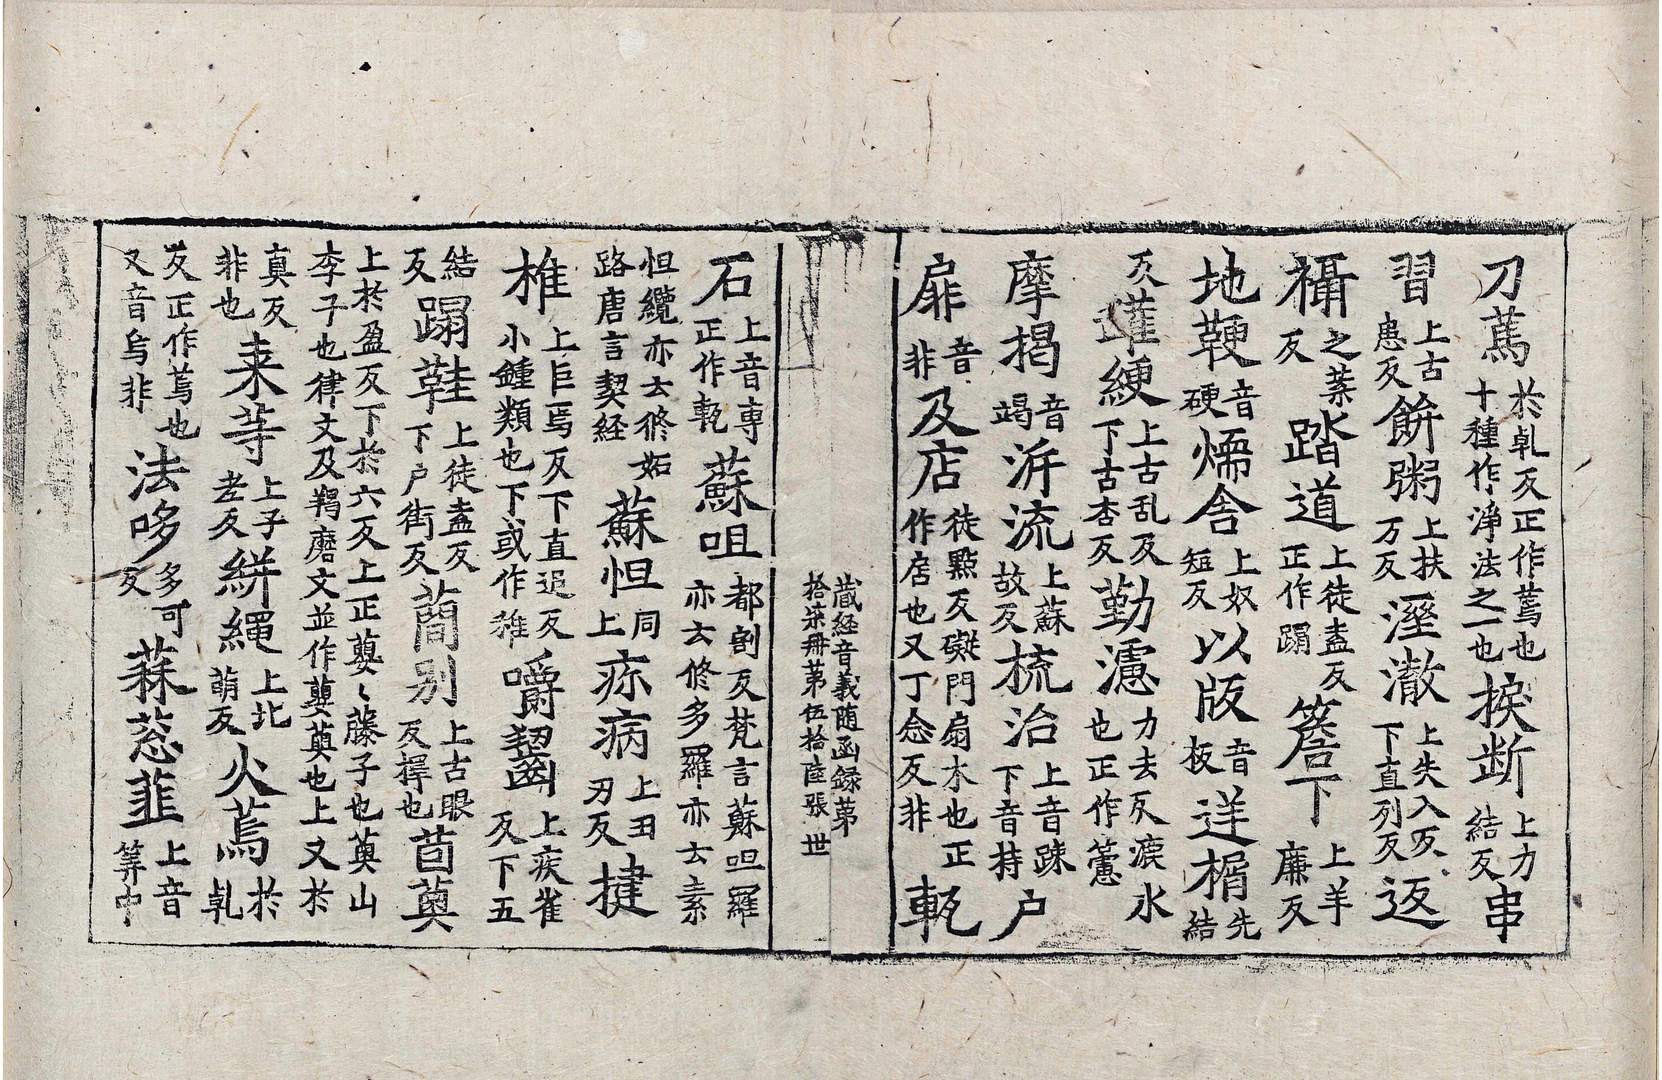 刀蔫於乹反正作蔫也十種作淨法之一也捩斷上力結反串
習上古患反餅粥上扶万反溼潵上失入反下直列反返
襵之葉反踏道上徒盍反正作蹋簷下上羊廉反
地鞕音硬㷮舍上奴短反以版音板送楈先結
反䕶綆上古乱反下古杏反勤濾力去反漉水也正作䕡
摩揭音竭泝流上蘇故反梳治上音踈下音持户
扉音非及店徒點反礙門扇木也正作㡹也又丁念反非䡖
藏經音義随函録苐拾柒冊苐伍拾陸張 世
石上音専正作甎蘇呾都割反梵言蘇呾羅亦云修多羅亦云素
怛纜亦云修妬路唐言契經蘇怛同上疢病上丑刃反揵
椎上巨焉反下直追反小鍾類也下或作稚嚼齧上疾雀反下五
結反蹋鞋上徒盍反下户街反蕳别上古眼反擇也苢薁
上於盈反下於六反上正蘡〻藤子也薁山李子也律文及羯磨文並作蘡薁也上又於
真反非也来䓁上子老反絣繩上北萌反火蔫於乹
反正作蔫也又音烏非法哆多可反菻䓗韮上音筭中